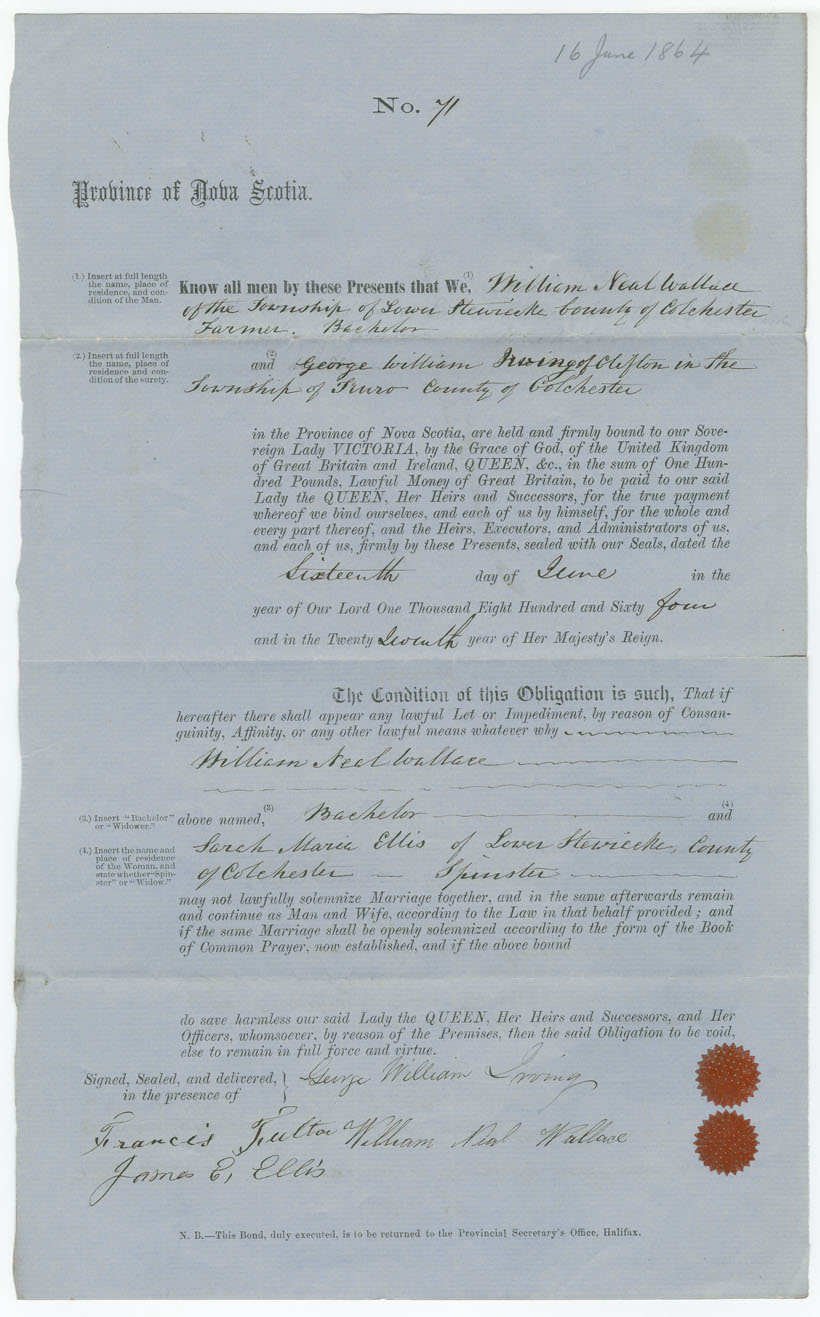 16 June 1864
No. 71
Province of Nova Scotia.
(1.) Insert at full length
the name, place of
residence, and con-
dition of the Man.
Know all men by these Presents that We, (1) William Neal Wallace
of the Township of Lower Stewiecke County of Colchester
Farmer. Bachelor
(2.) Insert at full length
the name, place of
residence and con-
dition of the surety.
and (2) George William Irving of Clifton in the
Township of Truro County of Colchester
in the Province of Nova Scotia, are held and firmly bound to our Sove-
reign Lady VICTORIA, by the Grace of God, of the United Kingdom
of Great Britain and Ireland, QUEEN, &c., in the sum of One Hun-
dred Pounds, Lawful Money of Great Britain, to be paid to our said
Lady the QUEEN, Her Heirs and Successors, for the true payment
whereof we bind ourselves, and each of us by himself, for the whole and
every part thereof, and the Heirs, Executors, and Administrators of us,
and each of us, firmly by these Presents, sealed with our Seals, dated the
Sixteenth day of June in the
year of Our Lord One Thousand Eight Hundred and Sixty four
and in the Twenty Seventh year of Her Majesty's Reign.
The Condition of this Obligation is such, That if
hereafter there shall appear any lawful Let or Impediment, by reason of Consan-
guinity, Affinity, or any other lawful means whatever why
William Neal Wallace
(3.) Insert "Bachelor"
or "Widower."
above named, (3) Bachelor (4) and
(4.) Insert the name and
place of residence
of the Woman, and
state whether "Spin-
ster" or "Widow."
Sarah Maria Ellis of Lower Stewiecke, County
of Colchester — Spinster
may not lawfully solemnize Marriage together, and in the same afterwards remain
and continue as Man and Wife, according to the Law in that behalf provided; and
if the same Marriage shall be openly solemnized according to the form of the Book
of Common Prayer, now established, and if the above bound
do save harmless our said Lady the QUEEN, Her Heirs and Successors, and Her
Officers, whomsoever, by reason of the Premises, then the said Obligation to be void,
else to remain in full force and virtue.
Signed, Sealed, and delivered, } George William Irving
in the presence of
Francis Fulton William Neal Wallace
James E. Ellis
N. B.—This Bond, duly executed, is to be returned to the Provincial Secretary's Office, Halifax.